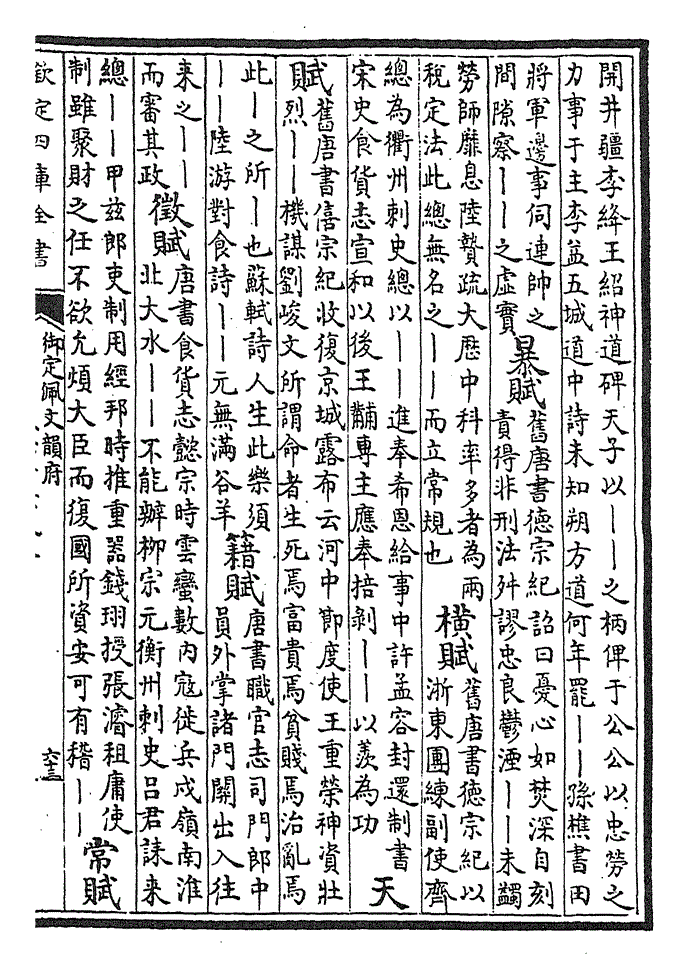 開井疆李絳王紹神道碑天子以——之柄俾于公公以忠勞之
力事于主李益五城道中詩未知朔方道何年罷——孫樵書田
將軍邊事伺連帥之
間隙察——之虛實
暴賦
舊唐書德宗紀詔曰憂心如焚深自刻
責得非刑法舛謬忠良鬱湮——未蠲
勞師靡息陸贄疏大厯中科率多者為兩
稅定法此總無名之——而立常規也
橫賦
舊唐書德宗紀以
浙東團練副使齊
總為衢州刺史總以——進奉希恩給事中許孟容封還制書
宋史食貨志宣和以後王黼專主應奉掊剝——以羨為功
天
賦
舊唐書僖宗紀收復京城露布云河中節度使王重榮神資壯
烈——機謀劉峻文所謂命者生死焉富貴焉貧賤焉治亂焉
此—之所—也蘇軾詩人生此樂須
——陸游對食詩——元無滿谷羊
籍賦
唐書職官志司門郎中
員外掌諸門關出入往
來之——
而審其政
徵賦
唐書食貨志懿宗時雲蠻數內寇徙兵戍嶺南淮
北大水——不能辦柳宗元衡州刺史呂君誄來
總——甲兹郎吏制用經邦時推重器錢珝授張濬租庸使
制雖聚財之任不欲允煩大臣而復國所資安可有稽——
常賦
欽定四庫全書
御定佩文韻府
六三